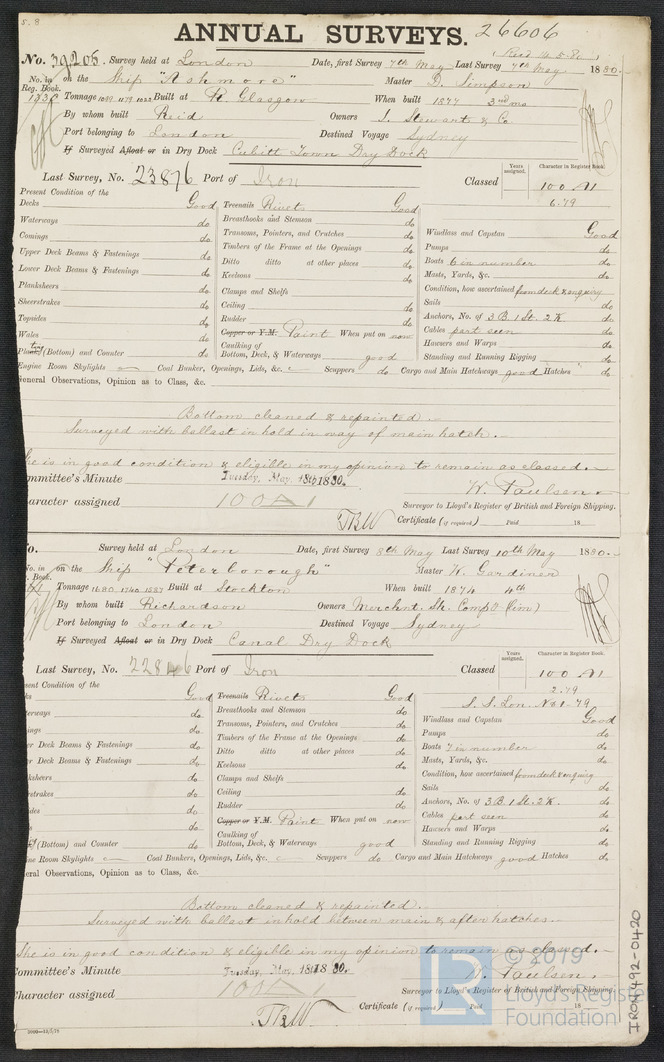 5.8
ANNUAL SURVEYS. 26606
No. 39205. Survey held at London Date, first Survey 7th May Last Survey 7th May 1880.
No. in on the Ship "Ashmore" Master D. Simpson
Reg. Book.
Tonnage 1099 1179 1022 Built at Pt Glasgow When built 1877 3rd mo
By whom built Reid Owners J. Stewart & Co.
Port belonging to London Destined Voyage Sydney
If Surveyed Afloat or in Dry Dock Cubitt Town Dry Dock
Last Survey, No. 23876 Port of Iron Classed
Years assigned. Character in Register Book.
100 A1
6.79
Present Condition of the
Decks Good Treenails Rivets Good
Waterways do Breasthooks and Stemson do
Comings do Transoms, Pointers, and Crutches do Windlass and Capstan Good
Upper Deck Beams & Fastenings do Timbers of the Frame at the Openings do Pumps do
Lower Deck Beams & Fastenings do Ditto ditto at other places do Boats 6 in number do
Plansheers do Keelsons do Masts, Yards, &c. do
Sheerstrakes do Clamps and Shelfs Condition, how ascertained from deck & enquiry
Topsides do Ceiling do Sails do
Wales do Rudder do Anchors, No. of 3 B. 1 St. 2 K. do
Plating (Bottom) and Counter do Copper or Y.M. Paint When put on now Cables part seen do
Caulking of Bottom, Deck, & Waterways good Hawsers and Warps do
Standing and Running Rigging do
Engine Room Skylights Coal Bunkers, Openings, Lids, &c. Scuppers do Cargo and Main Hatchways good Hatches do
General Observations, Opinion as to Class, &c.
Bottom cleaned & repainted.
Surveyed with ballast in hold in way of main hatch.
She is in good condition & eligible in my opinion to remain as classed.
Committee's Minute Tuesday, May, 18th 1880. W. Paulsen
Character assigned 100A1 Surveyor to Lloyd's Register of British and Foreign Shipping.
Certificate (if required) Paid 18
No. Survey held at London Date, first Survey 8th May Last Survey 10th May 1880.
No. in on the Ship "Peterborough" Master W. Gardiner
Book.
Tonnage 1680 1740 1587 Built at Stockton When built 1874 4th
By whom built Richardson Owners Merchant Sh. Compy (Lim)
Port belonging to London Destined Voyage Sydney
If Surveyed Afloat or in Dry Dock Canal Dry Dock
Last Survey, No. 22846 Port of Iron Classed
Years assigned. Character in Register Book.
100 A1
2.79
S.S. Lon. No 1-79
sent Condition of the
Good Treenails Rivets Good
terways do Breasthooks and Stemson do Windlass and Capstan Good
ings do Transoms, Pointers, and Crutches do Pumps do
er Deck Beams & Fastenings do Timbers of the Frame at the Openings do Boats 7 in number do
er Deck Beams & Fastenings do Ditto ditto at other places do Masts, Yards, &c. do
ksheers do Keelsons do Condition, how ascertained from deck & enquiry
strakes do Clamps and Shelfs Sails do
ides do Ceiling do Anchors, No. of 3 B. 1 St. 2 K. do
do Rudder do Cables part seen do
(Bottom) and Counter do Copper or Y.M. Paint When put on now Hawsers and Warps do
Caulking of Bottom, Deck, & Waterways good Standing and Running Rigging do
ne Room Skylights Coal Bunkers, Openings, Lids, &c. Scuppers do Cargo and Main Hatchways good Hatches do
eral Observations, Opinion as to Class, &c.
Bottom cleaned & repainted.
Surveyed with ballast in hold between main & after hatches.
She is in good condition & eligible in my opinion to remain as classed.
Committee's Minute Tuesday, May, 18th 1880. W. Paulsen
Character assigned 100A Surveyor to Lloyd's Register of British and Foreign Shipping.
Certificate (if required) Paid 18
IRON 492-0420
LR © 2019
Lloyd's Register
Foundation